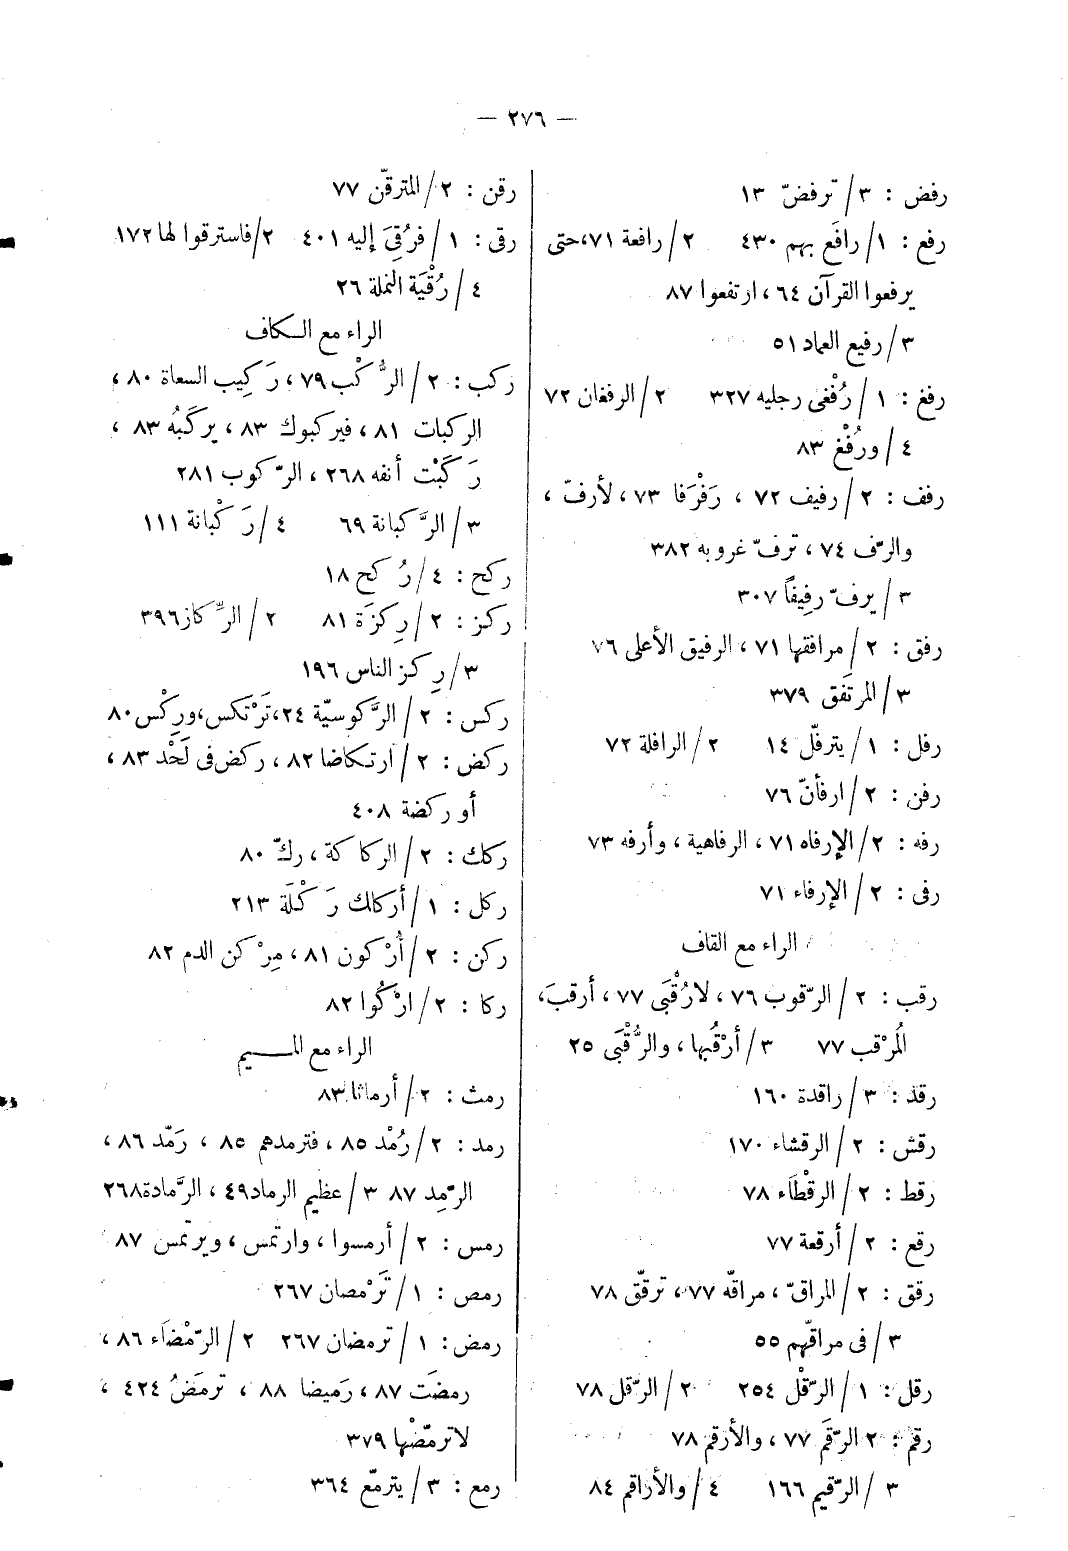 — ٢٧٦ —
رفض : ٣/ ترفضّ ١٣
رفع : ١/ رافَع بهم ٤٣٠ ٢/ رافعة ٧١، حتى
يرفعوا القرآن ٦٤، ارتفعوا ٨٧
٣/ رفيع العماد ٥١
رفغ : ١/ رُفْغى رجليه ٣٢٧ ٢/ الرفغان ٧٢
٤/ ورُفْغ ٨٣
رفف : ٢/ رفيف ٧٢ ، رَفْرَفا ٧٣ ، لأرفّ ،
والرّف ٧٤ ، ترفّ غروبه ٣٨٢
٣/ يرفّ رفِيفاً ٣٠٧
رفق : ٢/ مرافقها ٧١ ، الرفيق الأعلى ٧٦
٣/ المرتَفق ٣٧٩
رفل : ١/ يترفّل ١٤ ٢/ الرافلة ٧٢
رفن : ٢/ ارفأنّ ٧٦
رفه : ٢/ الإرفاه ٧١ ، الرفاهية ، وأرفه ٧٣
رفى : ٢/ الإرفاء ٧١
الراء مع القاف
رقب : ٢/ الرّقوب ٧٦ ، لا رُقْبَى ٧٧ ، أرقبَ،
المُرْقب ٧٧ ٣/ أرْقُبها ، والرُّقْبَى ٢٥
رقد : ٣/ راقدة ١٦٠
رقش : ٢/ الرقشاء ١٧٠
رقط : ٢/ الرقْطَاء ٧٨
رقع : ٢/ أرقعة ٧٧
رقق : ٢/ المراقّ ، مراقّه ٧٧ ، ترقّق ٧٨
٣/ فى مراقّهم ٥٥
رقل : ١/ الرّقْل ٢٥٤ ٢/ الرّقل ٧٨
رقم : ٢ الرّقَم ٧٧ ، والأرقم ٧٨
٣/ الرّقيم ١٦٦ ٤/ والأراقم ٨٤
رقن : ٢/ المترقّن ٧٧
رقى : ١/ فرُقِىَ إليه ٤٠١ ٢/ فاسترقوا لها ١٧٢
٤/ رُقْيَة النملة ٢٦
الراء مع الكاف
ركب : ٢/ الرُّكْب ٧٩ ، رَكِيب السعاة ٨٠ ،
الركبات ٨١ ، فيركبوك ٨٣ ، يركَبُه ٨٣ ،
رَكَبْت أنفه ٢٦٨ ، الرّكوب ٢٨١
٣/ الرَّكبانة ٦٩ ٤/ رَكْبانة ١١١
ركح : ٤/ رُكح ١٨
ركز : ٢/ رِكزَة ٨١ ٢/ الرِّكاز ٣٩٦
٣/ رِكز الناس ١٩٦
ركس : ٢/ الرَّكوسيّة ٢٤، تَرْتَكس، ورِكْس ٨٠
ركض : ٢/ ارتكاضا ٨٢ ، ركض فى لَحْد ٨٣ ،
أو ركضة ٤٠٨
ركك : ٢/ الركاكة ، ركّ ٨٠
ركل : ١/ أركلك رَكْلَة ٢١٣
ركن : ٢/ أُرْكون ٨١ ، مِرْكن الدم ٨٢
ركا : ٢/ ارْكُوا ٨٢
الراء مع الميم
رمث : ٢/ أرماثا ٨٣
رمد : ٢/ رُمْد ٨٥ ، فترمدهم ٨٥ ، رَمّد ٨٦ ،
الرّمِد ٨٧ ٣/ عظيم الرماد ٤٩ ، الرَّمادة ٢٦٨
رمس : ٢/ أرمسوا ، وارتمس ، ويرتمس ٨٧
رمص : ١/ تَرْمصان ٢٦٧
رمض : ١/ ترمضان ٢٦٧ ٢/ الرّمْضَاء ٨٦ ،
رمضَت ٨٧ ، رَميضا ٨٨ ، ترمَضُ ٤٢٤ ،
لا ترمّضْها ٣٧٩
رمع : ٣/ يترمّع ٣٦٤